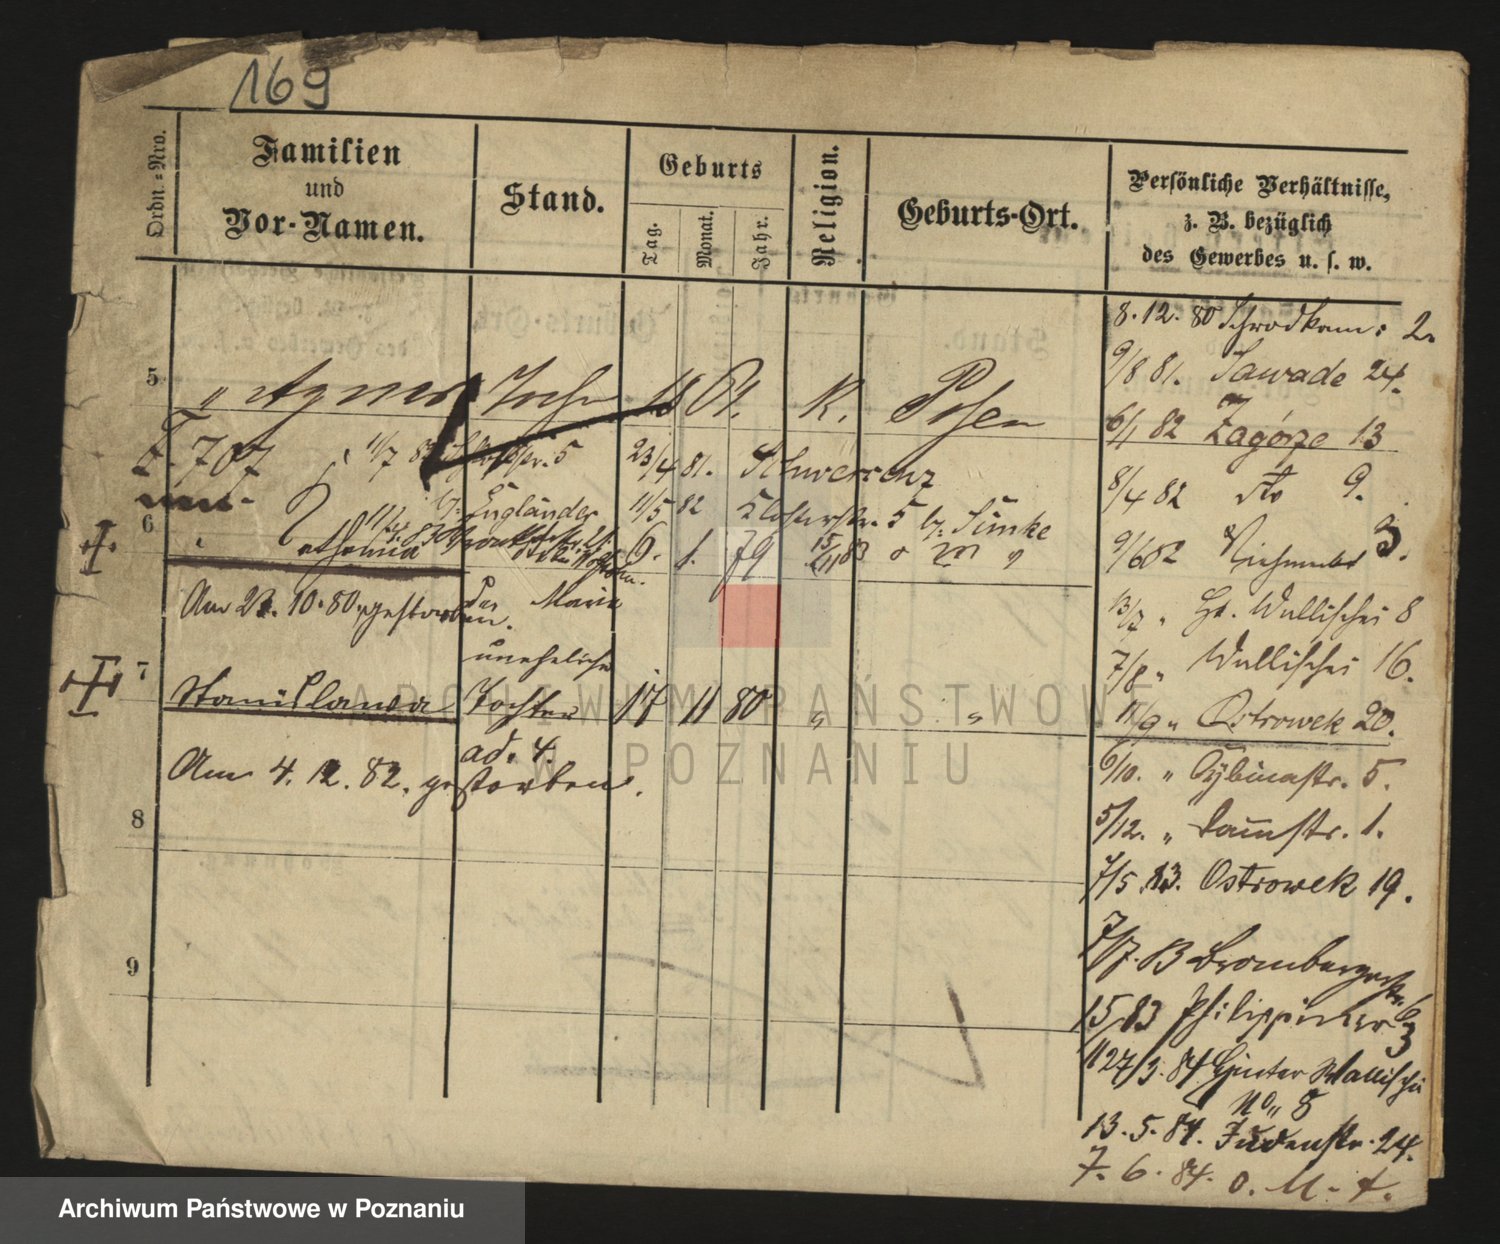 169
Ordn.-Nro.
Familien
und
Vor-Namen.
Stand.
Geburts
Tag.
Monat.
Jahr.
Religion.
Geburts-Ort.
Persönliche Verhältnisse,
z. B. bezüglich
des Gewerbes u. s. w.
8.12.80 Schrodkam: 2.
9/8 81. Sawade 24.
5 " Agnes 61. K. Posen
6/1 82 Zagórze 13
707 11/7 5 23/4 81. Schwersenz
8/4 82 dto 9.
Engländer 11/5 82 5 b. Simke
6 6. 1. 79 15/11 83 o m "
9/6 82 3.
Am 21.10.80. gestorben.
der Marie
13/7 " Gr. Wallischei 8
uneheliche
7/8 " Wallischei 16.
7 Stanislawa Tochter 17 11 80 " "
11/9 " Ostrowek 20.
ad. 4.
Am 4.12.82. gestorben.
6/10. " Cybinastr. 5.
8
5/12. " Dammstr. 1.
7/5 83. Ostrowek 19.
9
7/7. 83 Brombergerstr. 6
15/ 83 Philippiner 3
27/3. 84 Hinter Wallischei
No " 8
13.5.84. Judenstr. 24.
7.6.84. o. M. t.
ARCHIWUM PAŃSTWOWE
W POZNANIU
Archiwum Państwowe w Poznaniu